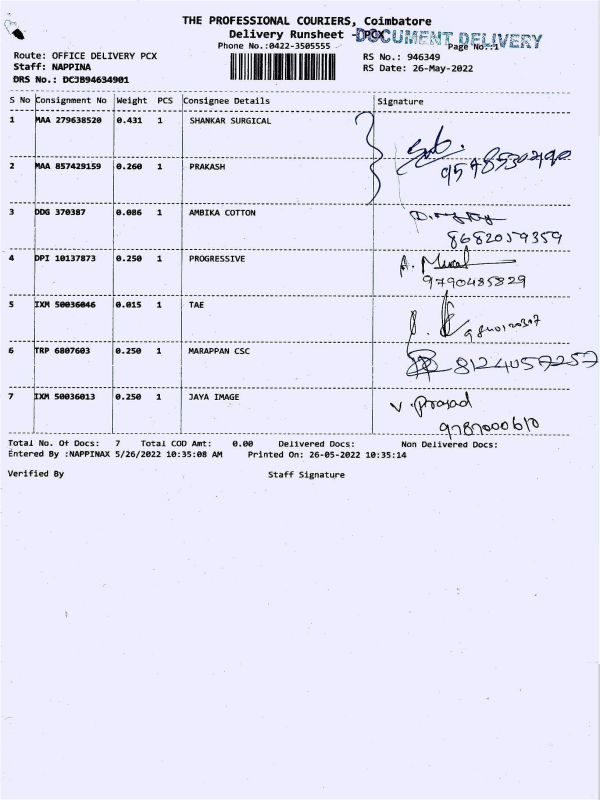 THE PROFESSIONAL COURIERS, Coimbatore
Delivery Runsheet - PCX
DOCUMENT DELIVERY
Phone No.:0422-3505555
Page No.:1
Route: OFFICE DELIVERY PCX
RS No.: 946349
Staff: NAPPINA
RS Date: 26-May-2022
DRS No.: DCJB94634901
S No Consignment No Weight PCS Consignee Details Signature
1 MAA 279638520 0.431 1 SHANKAR SURGICAL
2 MAA 857429159 0.260 1 PRAKASH
3 DDG 370387 0.086 1 AMBIKA COTTON
8682059359
4 DPI 10137873 0.250 1 PROGRESSIVE
9790485829
5 IXM 50036046 0.015 1 TAE
6 TRP 6807603 0.250 1 MARAPPAN CSC
8124057257
7 IXM 50036013 0.250 1 JAYA IMAGE
V. Prasad
9787000610
Total No. Of Docs: 7 Total COD Amt: 0.00 Delivered Docs: Non Delivered Docs:
Entered By :NAPPINAX 5/26/2022 10:35:08 AM Printed On: 26-05-2022 10:35:14
Verified By Staff Signature